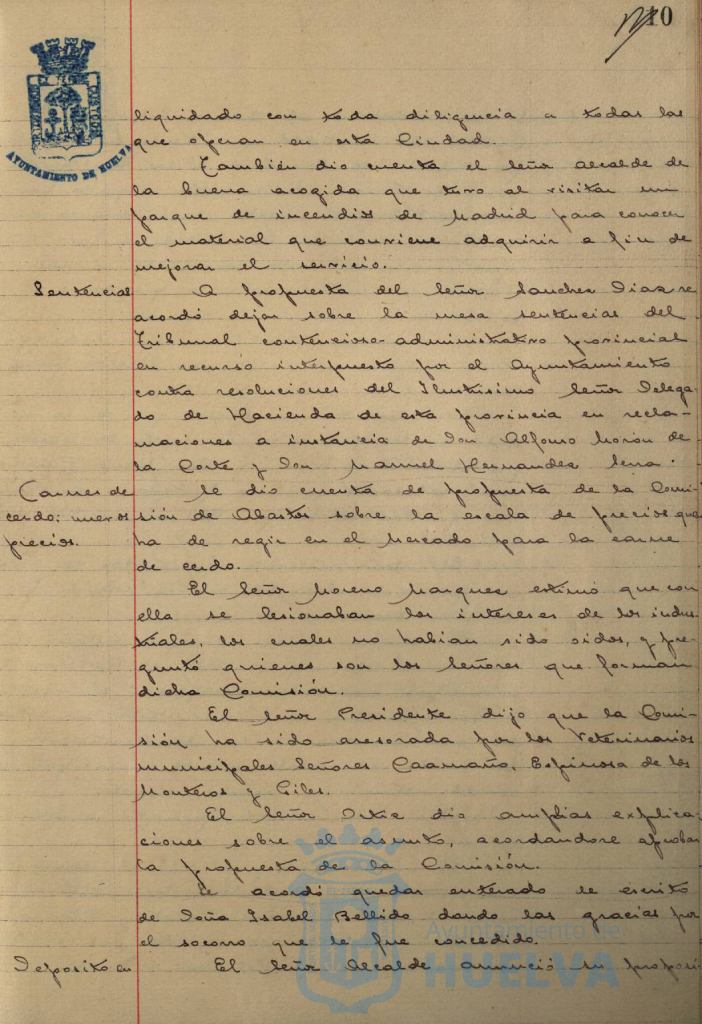 10
AYUNTAMIENTO DE HUELVA
liquidado con toda diligencia a todas las
que operan en esta Ciudad.
También dio cuenta el Señor Alcalde de
la buena acogida que tuvo al visitar un
parque de incendios de Madrid para conocer
el material que conviene adquirir a fin de
mejorar el servicio.
Sentencias
A propuesta del Señor Sanchez Diaz se
acordó dejar sobre la mesa sentencias del
Tribunal contencioso-administrativo provincial
en recurso interpuesto por el Ayuntamiento
contra resoluciones del Ilustrisimo Señor Delega-
do de Hacienda de esta provincia en recla-
maciones a instancia de Don Alfonso Morón de
la Corte y Don Manuel Hernandez Sena.
Carnes de
cerdo; nuevos
precios.
Se dio cuenta de propuesta de la Comi-
sión de Abastos sobre la escala de precios que
ha de regir en el Mercado para la carne
de cerdo.
El Señor Moreno Marquez estimó que con
ella se lesionaban los intereses de los indus-
triales, los cuales no habian sido oidos, y pre-
guntó quienes son los Señores que forman
dicha Comisión.
El Señor Presidente dijo que la Comi-
sión ha sido asesorada por los Veterinarios
municipales Señores Caamaño, Espinosa de los
Monteros y Giles.
El Señor Ortiz dio amplias explica-
ciones sobre el asunto, acordandose aprobar
la propuesta de la Comisión.
Se acordó quedar enterado de escrito
de Doña Isabel Bellido dando las gracias por
el socorro que le fue concedido.
Deposito en
El Señor Alcalde anunció su proposi-
Ayuntamiento de
HUELVA